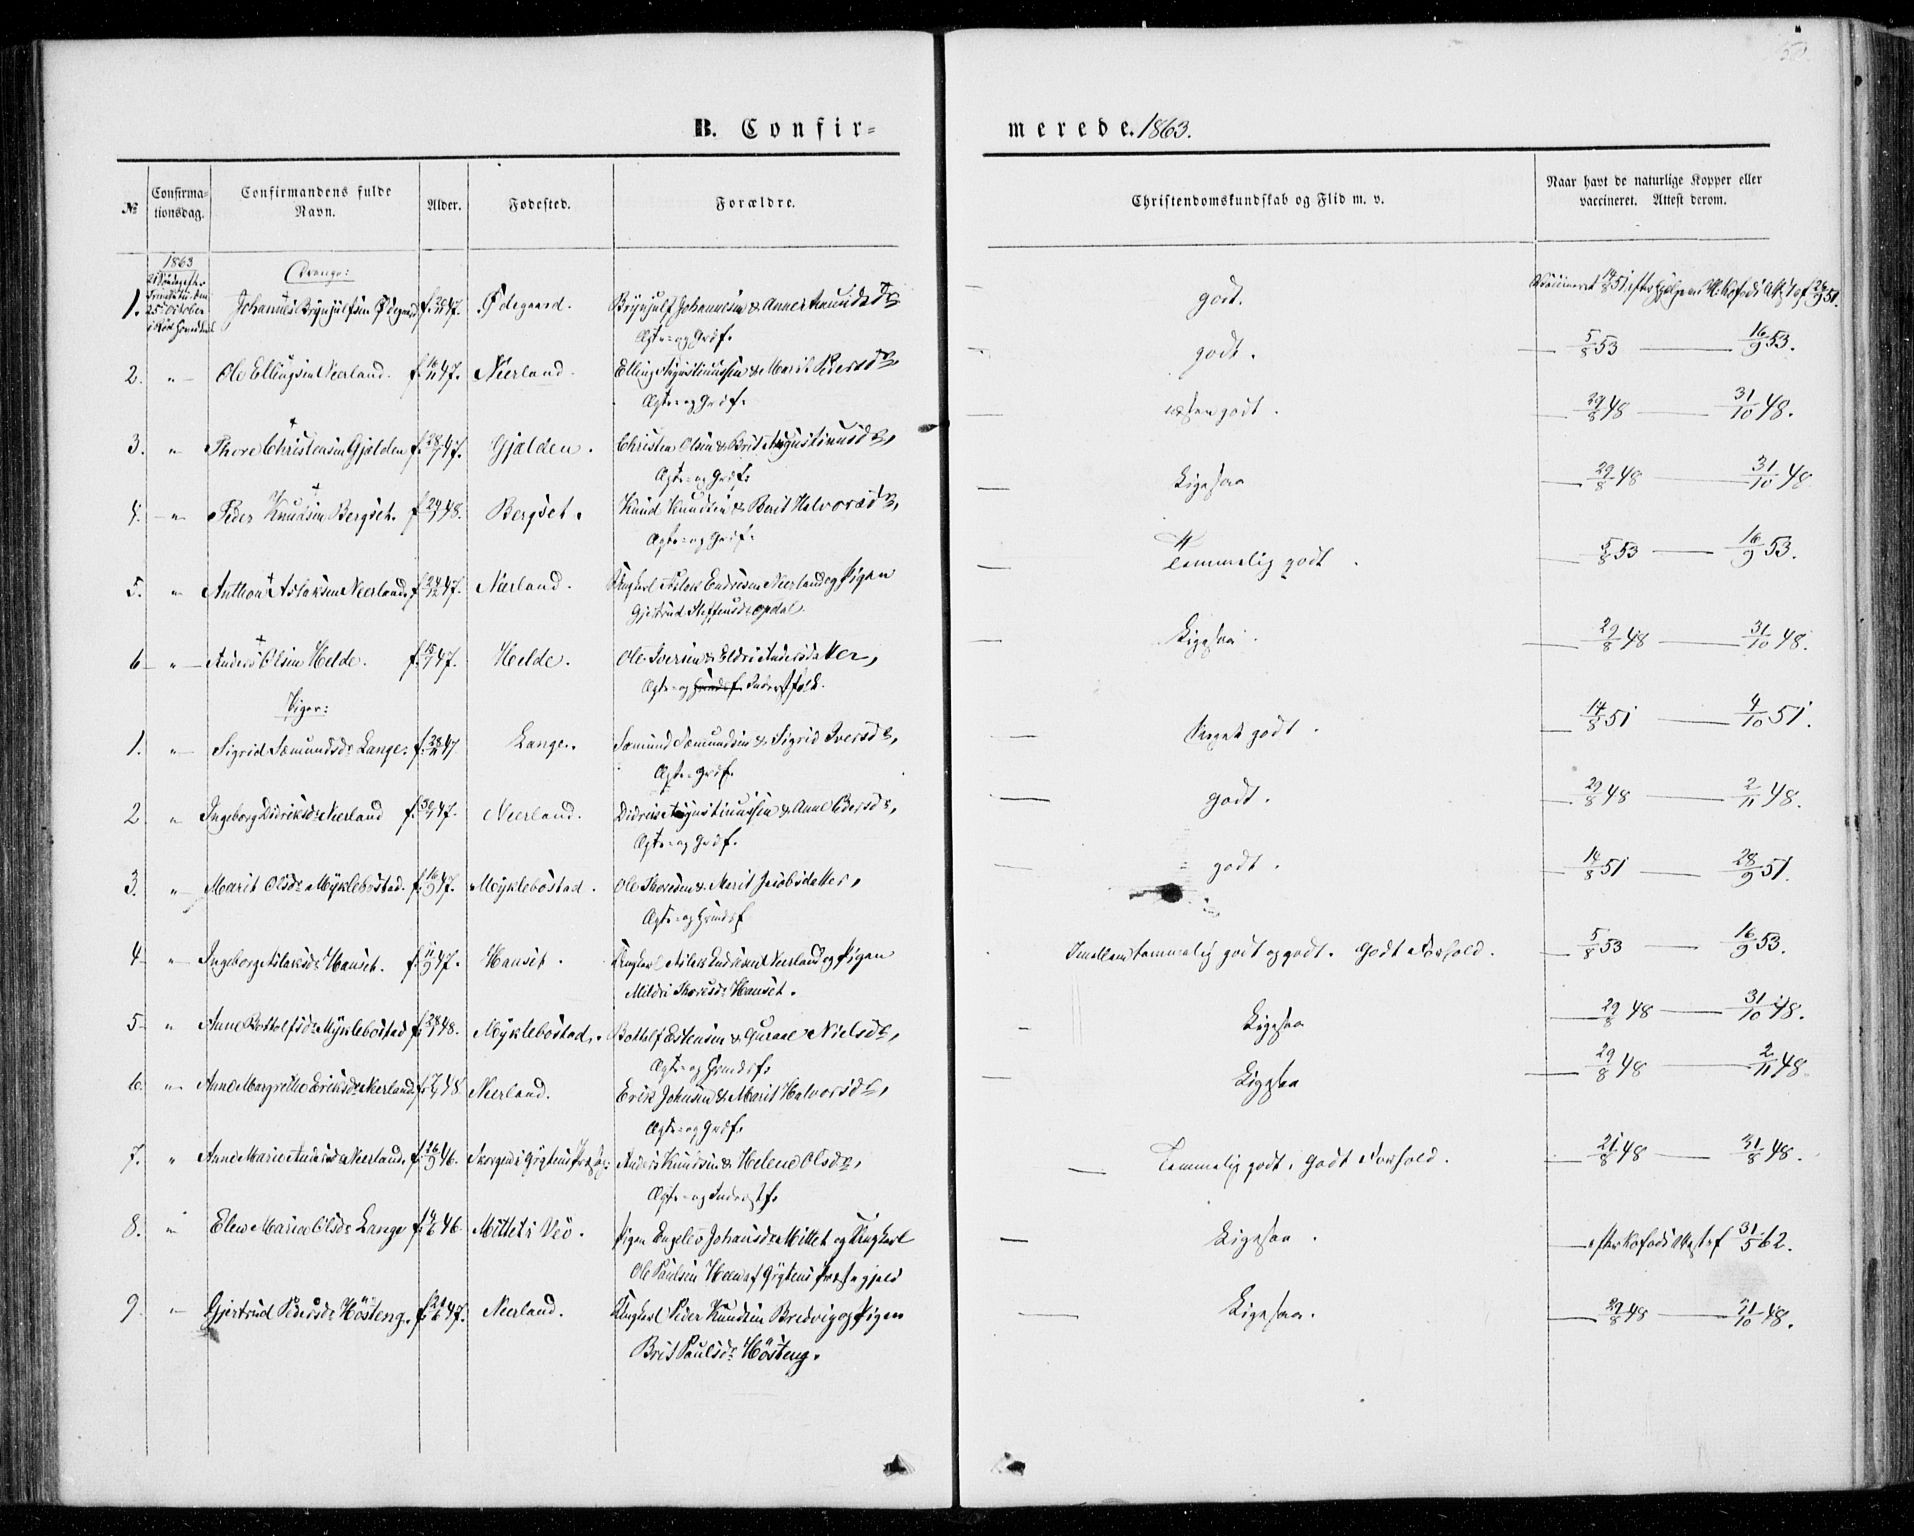 B. Confir=
merede. 1863.
№
Confirma-
tionsdag.
Confirmandens fulde
Navn.
Alder.
Fødested.
Forældre.
Christendomskundskab og Flid m. v.
Naar havt de naturlige Kopper eller
vaccineret. Attest derom.
1863
25de October
Drenge:
1. Johannes Brynjulfsen Ødegaard f. 47. Ødegaard. Brynjulf Johannesen & Anne Amundsd:
Ægte- og Grdf.
godt.
2. " Ole Ellingsen Neerland. f. 47. Neerland. Elling Augustinussen & Marit Pedersd:,
Ægte- og Grdf.
godt. 5/8 53 — 16/9 53.
3. " Thore Christensen Gjelden f. 28/ 47. Gjælden. Christen Olsen & Brit Augustinusd:,
Ægte- og Grdf.
næsten godt. 29/8 48 — 31/10 48.
4. " Peder Knudsen Bergset. f. 48. Bergset. Knud Knudsen & Berit Halvorsd:,
Ægte- og Grdf.
Ligesaa 29/8 48 — 31/10 48
5. " Anthon Aslaksen Neerland. f. 24/12 47. Neerland. Ungkarl Aslak Endresen Neerland og Pigen
Gjertrud Steffensd: Opdal.
Temmelig godt. 5/8 53 — 16/9 53.
6 " Anders Olsen Helde. f. 47. Helde. Ole Iversen & Eldri Andersdatter,
Ægte- og Inderstfolk.
Ligesaa. 29/8 48 — 31/10 48.
Piger:
1. " Sigrid Sæmundsd: Lange. f. 47 Lange. Sæmund Sæmundsen & Sigrid Iversd:,
Ægte- Grdf.
Meget godt. 14/8 51 — 4/10 51.
2 " Ingeborg Didriksd: Neerland f. 47. Neerland. Didrik Augustinussen & Anne Pedersd:,
Ægte- og Grdf.
godt. 29/8 48 — 2/11 48.
3. " Marit Olsd: Myklebostad. f. 16/9 47. Myklebostad. Ole Thoresen & Marit Jacobsdatter,
Ægte- og Grundsf
godt. 14/8 51 — 28/9 51.
4 " Ingeborg Aslaksd: Hanset. f. 11/9 47. Hanset. Ungkarl Aslak Endresen Neerland og Pigen
Mildri Thoresd: Hanset.
Imellem temmelig godt og godt. Godt Forhold. 5/8 53 — 16/9 53.
5 " Anne Bottolfsd: Myklebostad f. 48. Myklebostad. Bottolf Estensen & Guraae Nielsd:,
Ægte- og Grundsf.
Ligesaa 29/8 48 — 31/10 48.
6. " Anne Margrethe Eriksd: Neerland f. 48 Neerland. Erik Johnsen & Marit Halvorsd:,
Ægte- og Grdf.
Ligesaa 29/8 48 — 2/11 48.
7. " Anne Marie Andersd: Neerland. f. 46. Skorgen i Grytens Præstegj: Anders Knudsen & Helene Olsd:,
Ægte- og Inderstf.
Temmelig godt. Godt Forhold. 21/8 48 — 31/8 48.
8. " Elen Marie Olsd: Lange f. 46. Mittet i Veø. Pigen Engelev Johansd: Mittet og Ungkarl
Ole Paulsen Heen af Grytens Præstegjeld
Ligesaa. — efter Kofods Attest af 31/5 62.
9. " Gjertrud Pedersd: Høsteng. f. 47. Neerland. Ungkarl Peder Knudsen Bredvig og Pigen
Brit Paulsd: Høsteng.
Ligesaa. 29/8 48 — 31/10 48.